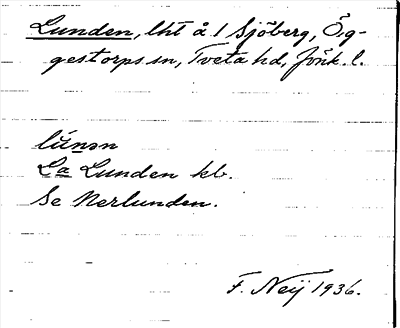 Lunden, lht å 1 Sjöberg, Ög-
gestorps sn, Tveta hd, Jönk. l.
lúnən
La Lunden kb.
Se Nerlunden.
F. Neij 1936.